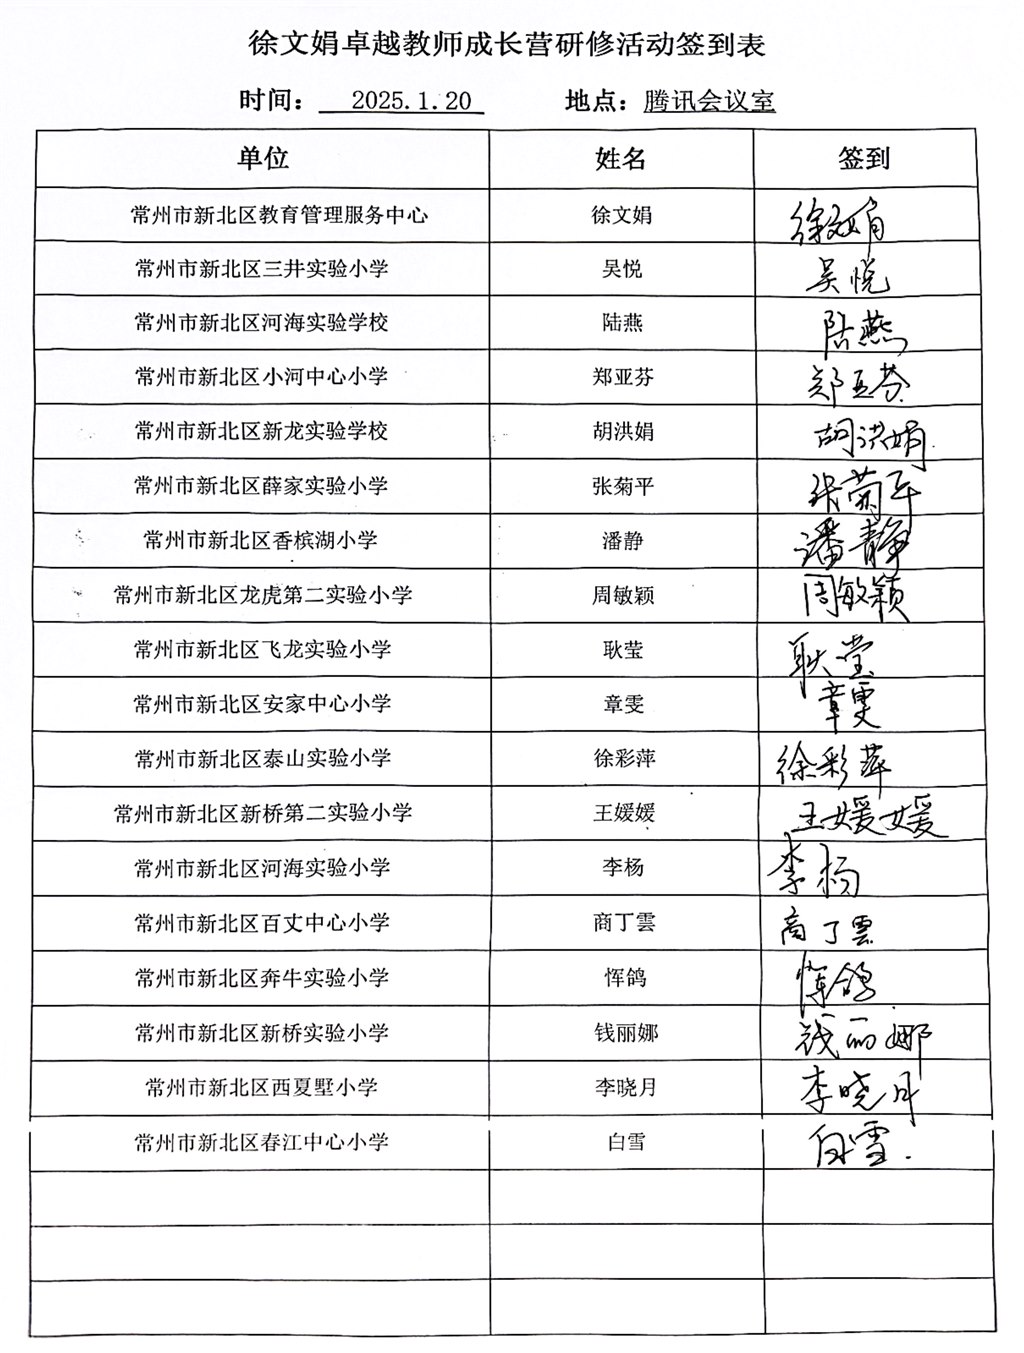 徐文娟卓越教师成长营研修活动签到表
时间： 2025.1.20 地点：腾讯会议室
单位 姓名 签到
常州市新北区教育管理服务中心 徐文娟 徐文娟
常州市新北区三井实验小学 吴悦 吴悦
常州市新北区河海实验学校 陆燕 陆燕
常州市新北区小河中心小学 郑亚芬 郑亚芬
常州市新北区新龙实验学校 胡洪娟 胡洪娟
常州市新北区薛家实验小学 张菊平 张菊平
常州市新北区香槟湖小学 潘静 潘静
常州市新北区龙虎第二实验小学 周敏颖 周敏颖
常州市新北区飞龙实验小学 耿莹 耿莹
常州市新北区安家中心小学 章雯 章雯
常州市新北区泰山实验小学 徐彩萍 徐彩萍
常州市新北区新桥第二实验小学 王媛媛 王媛媛
常州市新北区河海实验小学 李杨 李杨
常州市新北区百丈中心小学 商丁雲 商丁雲
常州市新北区奔牛实验小学 恽鸽 恽鸽
常州市新北区新桥实验小学 钱丽娜 钱丽娜
常州市新北区西夏墅小学 李晓月 李晓月
常州市新北区春江中心小学 白雪 白雪